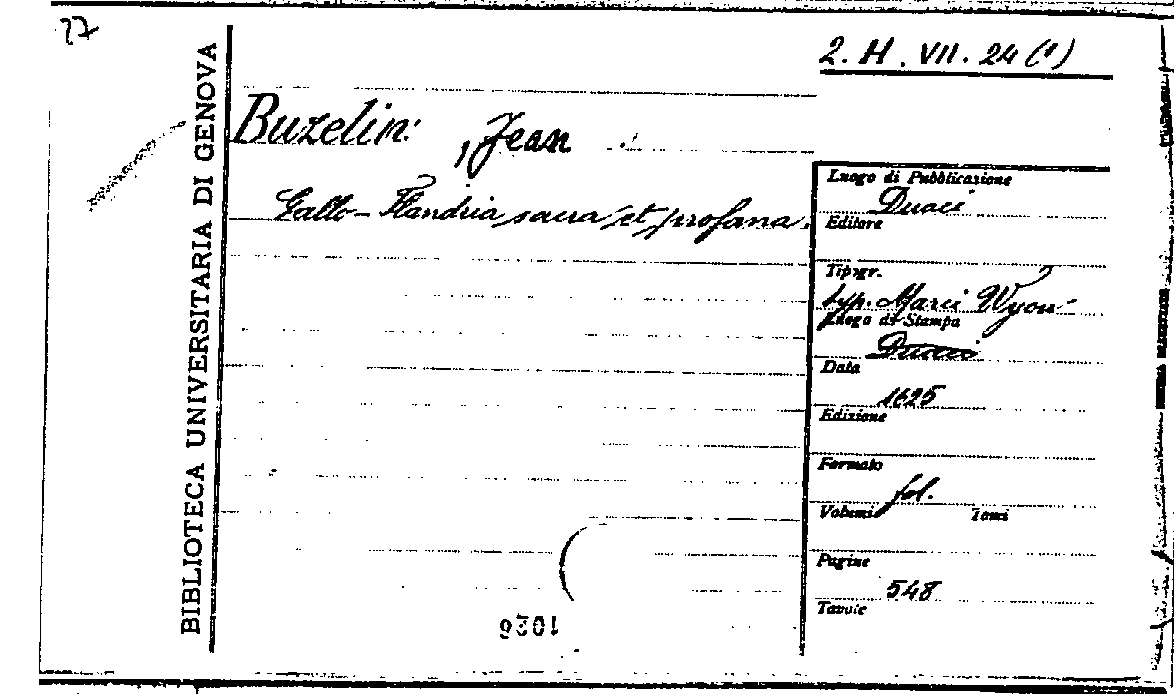 27
2. H. VII. 24 (1)
BIBLIOTECA UNIVERSITARIA DI GENOVA
Buzelin: , Jean
Gallo-Flandria sacra et profana.
Luogo di Pubblicazione
Duaci
Editore
Tipogr.
typ. Marci Wyon
Luogo di Stampa
Duaci
Data
1625
Edizione
Formato
fol.
Volumi Tomi
Pagine
548
Tavole
1026